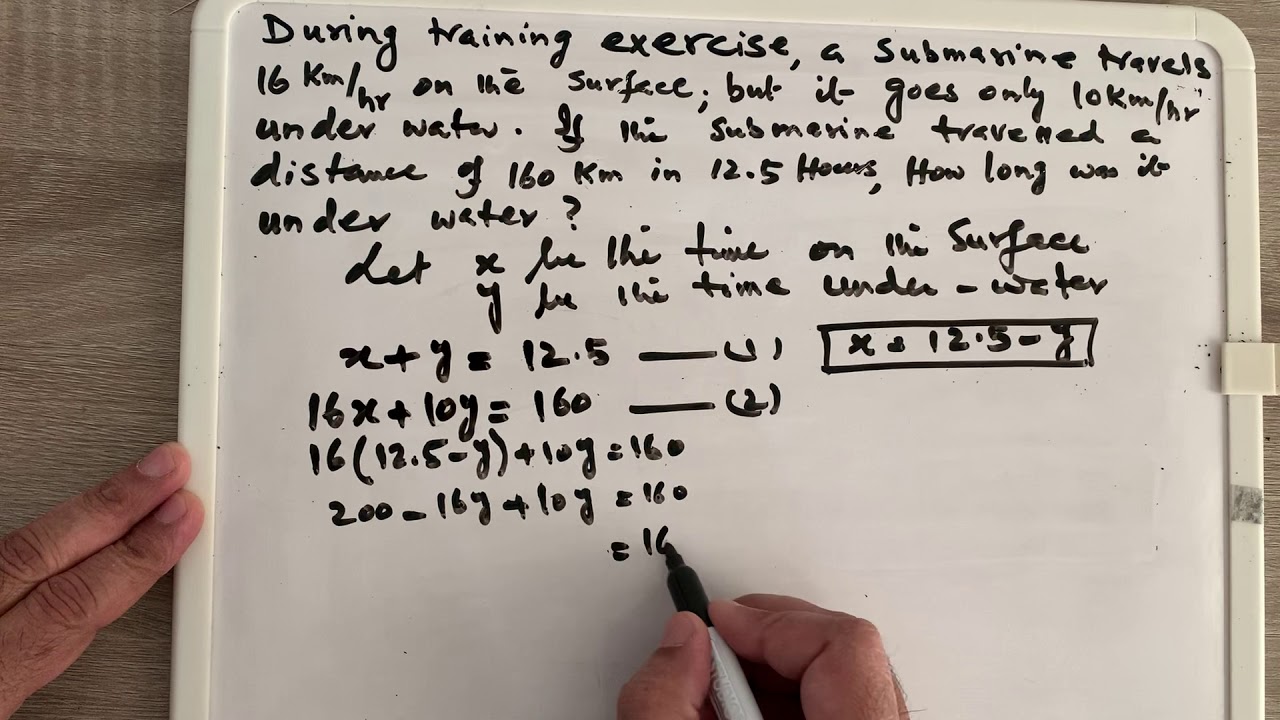 During training exercise, a submarine travels
16 Km/hr on the surface, but it goes only 10Km/hr
under water. If the submarine travelled a
distance of 160 Km in 12.5 Hours, How long was it
under water?
Let x be the time on the Surface
y be the time under-water
x + y = 12.5 —— (1)
x = 12.5 - y
16x + 10y = 160 —— (2)
16(12.5-y)+10y=160
200 - 16y + 10y = 160
= 16